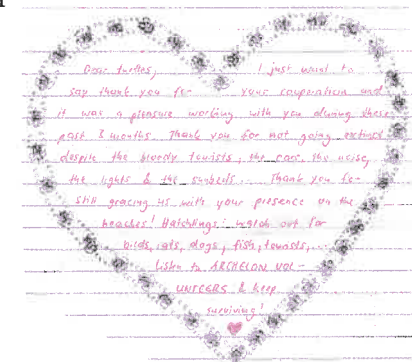 Dear turtles, I just want to
say thank you for your cooperation and
it was a pleasure working with you during these
past 3 months. Thank you for not going extinct
despite the bloody tourists, the cars, the noise,
the lights & the sunbeds... Thank you for
still gracing us with your presence on the
beaches! Hatchlings: watch out for
birds, cats, dogs, fish, tourists,...
Listen to ARCHELON VOL-
UNTEERS & keep
surviving!